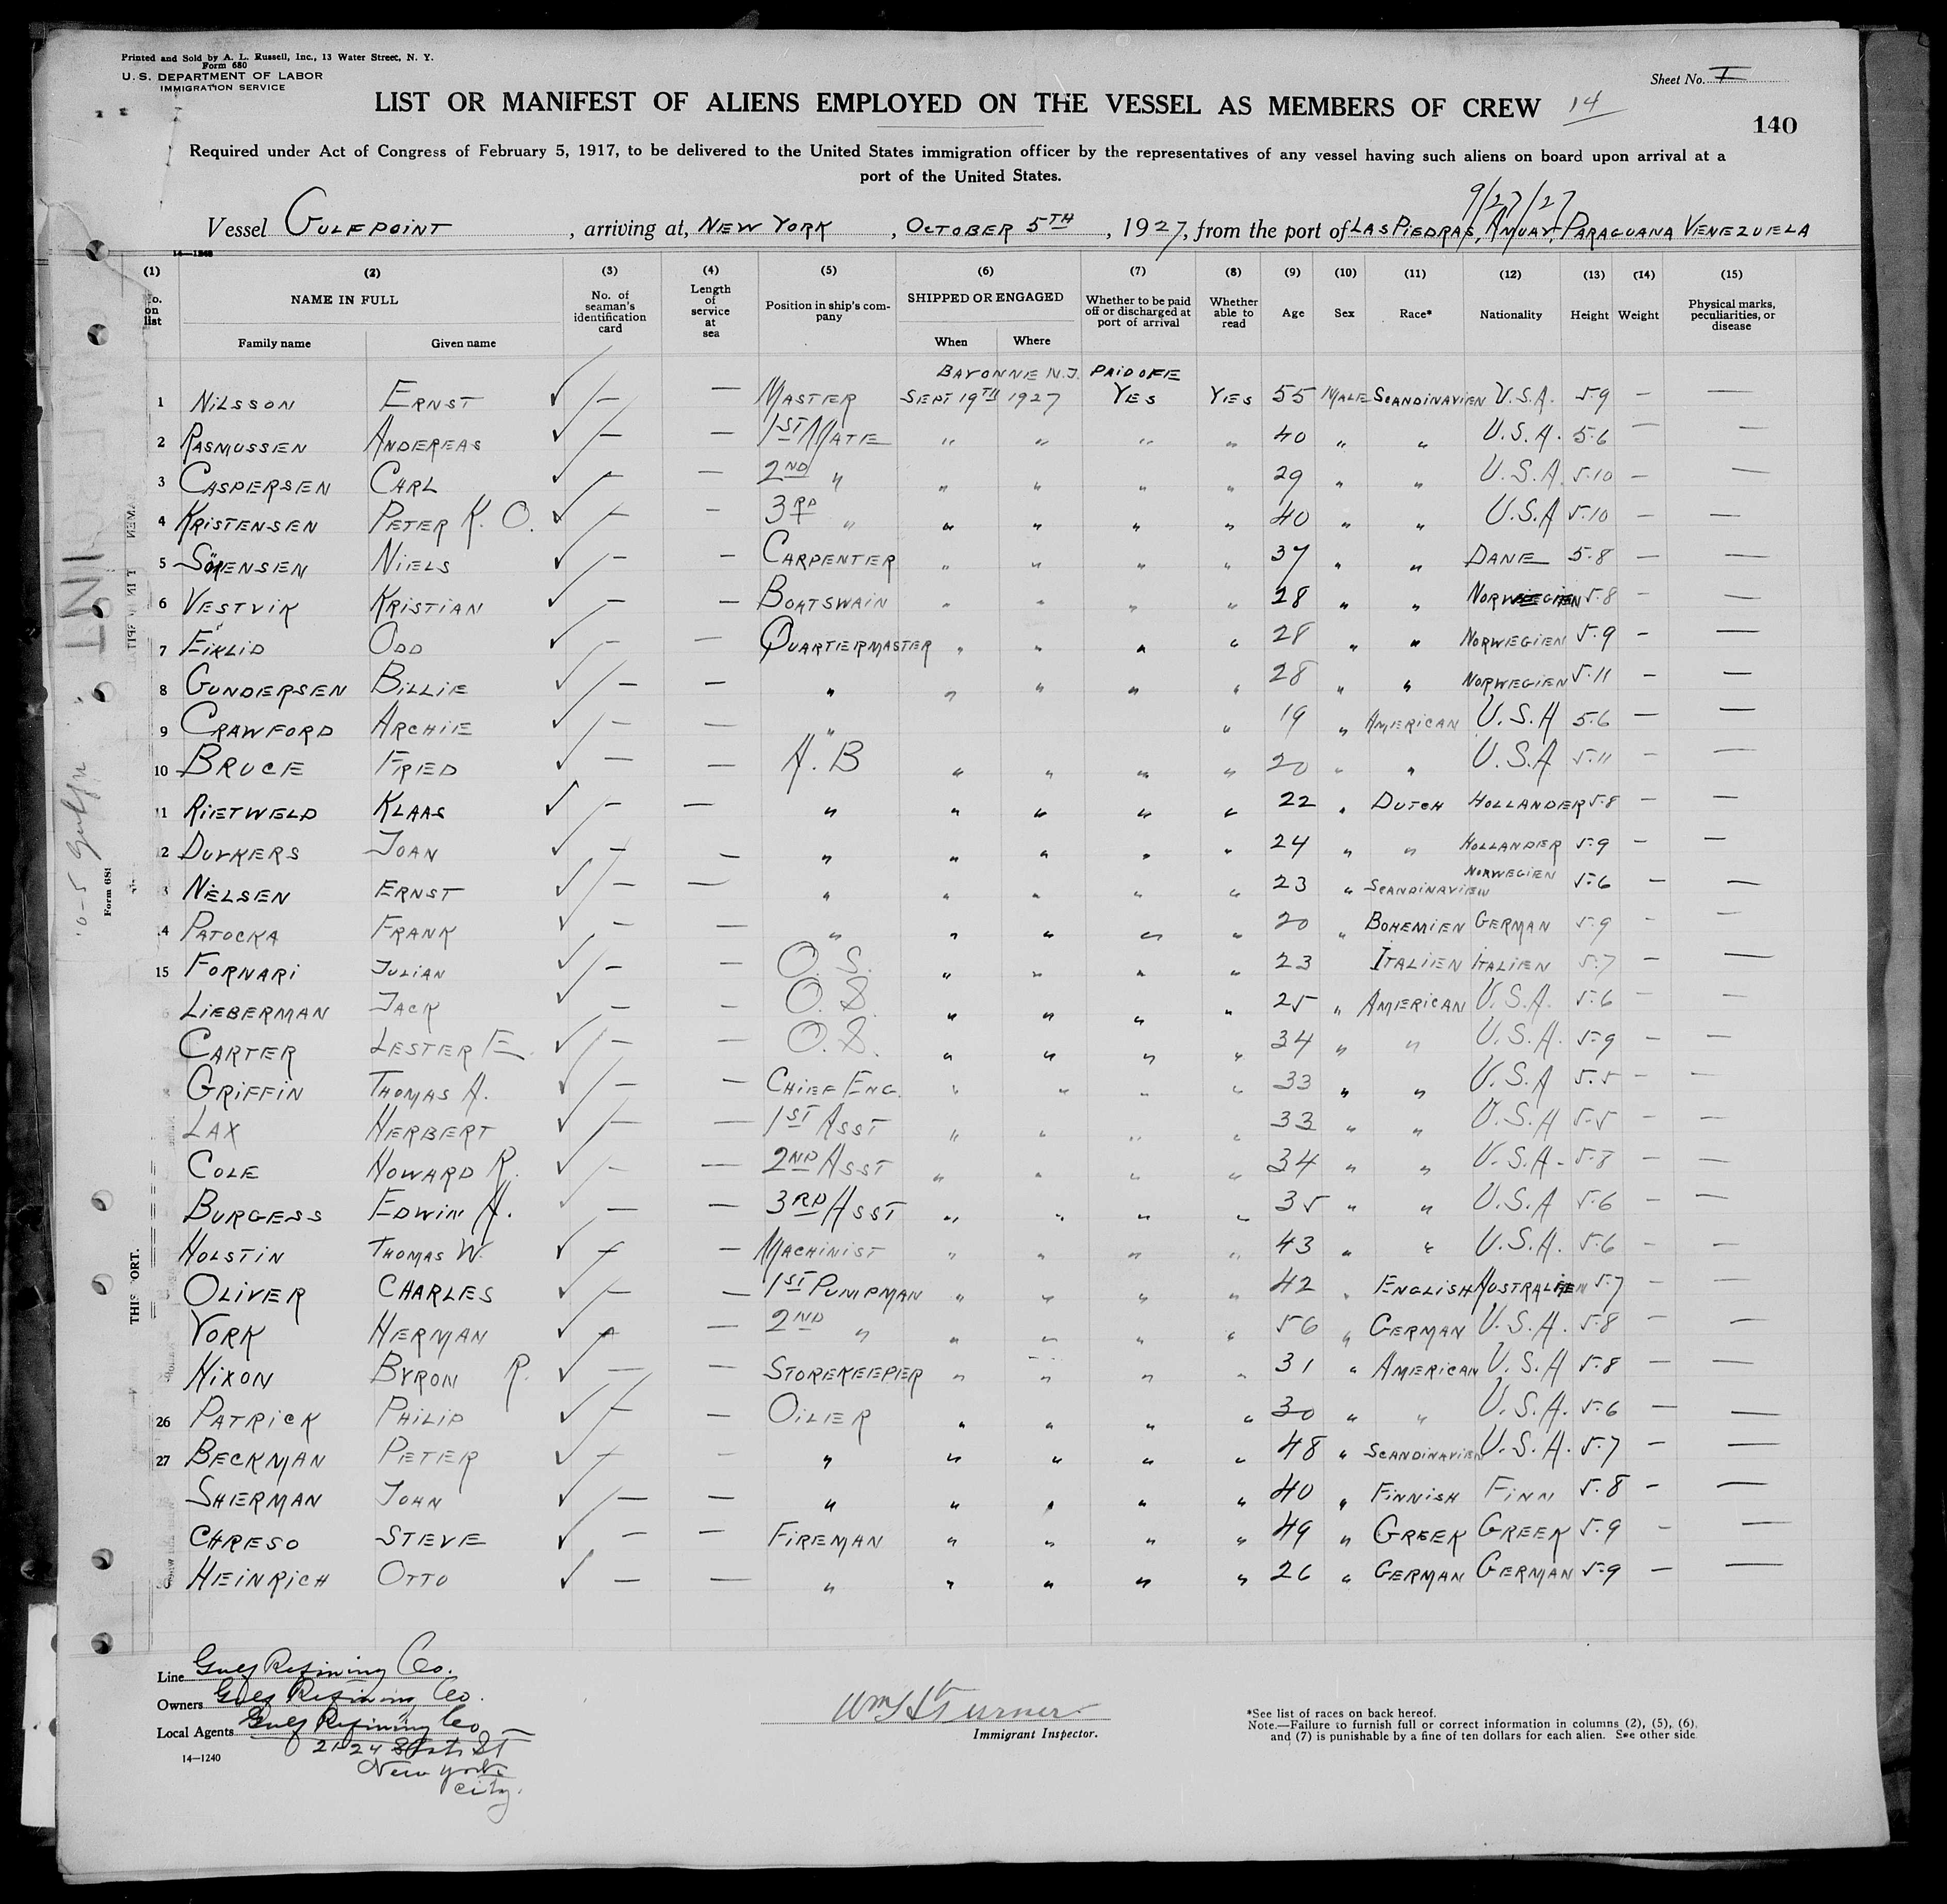 Printed and Sold by A. L. Russell, Inc., 13 Water Street, N. Y.
Form 680
U. S. DEPARTMENT OF LABOR
IMMIGRATION SERVICE
Sheet No. I
LIST OR MANIFEST OF ALIENS EMPLOYED ON THE VESSEL AS MEMBERS OF CREW 14
140
Required under Act of Congress of February 5, 1917, to be delivered to the United States immigration officer by the representatives of any vessel having such aliens on board upon arrival at a
port of the United States.
9/27/27
Vessel GULFPOINT, arriving at, NEW YORK, OCTOBER 5TH, 1927, from the port of LAS PIEDRAS, AMUAY, PARAGUANA VENEZUELA
14—1240
(1) (2) (3) (4) (5) (6) (7) (8) (9) (10) (11) (12) (13) (14) (15)
No. on list NAME IN FULL Family name Given name No. of seaman's identification card Length of service at sea Position in ship's company SHIPPED OR ENGAGED When Where Whether to be paid off or discharged at port of arrival Whether able to read Age Sex Race* Nationality Height Weight Physical marks, peculiarities, or disease
BAYONNE N.J. PAID OFF
1 NILSSON ERNST ✓ — — MASTER SEPT 19TH 1927 YES YES 55 MALE SCANDINAVIEN U.S.A. 5-9 — —
2 RASMUSSEN ANDEREAS ✓ — — 1ST MATE " " " " 40 " " U.S.A. 5-6 — —
3 CASPERSEN CARL ✓ — — 2ND " " " " " 29 " " U.S.A. 5-10 — —
4 KRISTENSEN PETER K. O. ✓ — — 3RD " " " " " 40 " " U.S.A 5-10 — —
5 SÖRENSEN NIELS ✓ — — CARPENTER " " " " 37 " " DANE 5-8 — —
6 VESTVIK KRISTIAN ✓ — — BOATSWAIN " " " " 28 " " NORWEGIEN 5-8 — —
7 EIKLID ODD ✓ — — QUARTERMASTER " " " " 28 " " NORWEGIEN 5-9 — —
8 GUNDERSEN BILLIE ✓ — — " " " " " 28 " " NORWEGIEN 5-11 — —
9 CRAWFORD ARCHIE ✓ — — " " 19 " AMERICAN U.S.A 5-6 — —
10 BRUCE FRED ✓ — — A.B " " " " 20 " " U.S.A 5-11 — —
11 RIETWELD KLAAS ✓ — — " " " " " 22 " DUTCH HOLLANDER 5-8 — —
12 DUYKERS JOAN ✓ — — " " " " " 24 " " HOLLANDER 5-9 — —
13 NELSEN ERNST ✓ — — " " " " " 23 " SCANDINAVIEN NORWEGIEN 5-6 — —
14 PATOCKA FRANK ✓ — — " " " " " 20 " BOHEMIEN GERMAN 5-9 — —
15 FORNARI JULIAN ✓ — — O.S. " " " " 23 ITALIEN ITALIEN 5-7 — —
LIEBERMAN JACK ✓ — — O.S. " " " " 25 " AMERICAN U.S.A. 5-6 — —
CARTER LESTER E. ✓ — — O.S. " " " " 34 " " U.S.A. 5-9 — —
GRIFFIN THOMAS A. ✓ — — CHIEF ENG. " " " " 33 " " U.S.A 5-5 — —
LAX HERBERT ✓ — — 1ST ASST " " " " 33 " " U.S.A 5-5 — —
COLE HOWARD R. ✓ — — 2ND ASST " " " " 34 " " U.S.A. 5-8 — —
BURGESS EDWIN A. ✓ — — 3RD ASST " " " " 35 " " U.S.A 5-6 — —
HOLSTIN THOMAS W. ✓ — — MACHINIST " " " " 43 " " U.S.A. 5-6 — —
OLIVER CHARLES ✓ — — 1ST PUMPMAN " " " " 42 " ENGLISH AUSTRALIEN 5-7 — —
YORK HERMAN ✓ — — 2ND " " " " " 56 " GERMAN U.S.A. 5-8 — —
NIXON BYRON R. ✓ — — STOREKEEPER " " " " 31 " AMERICAN U.S.A 5-8 — —
26 PATRICK PHILIP ✓ — — OILER " " " " 30 " " U.S.A. 5-6 — —
27 BECKMAN PETER ✓ — — " " " " " 48 " SCANDINAVIEN U.S.A. 5-7 — —
SHERMAN JOHN ✓ — — " " " " " 40 " FINNISH FINN 5-8 — —
CHRESO STEVE ✓ — — FIREMAN " " " " 49 " GREEK GREEK 5-9 — —
30 HEINRICH OTTO ✓ — — " " " " " 26 " GERMAN GERMAN 5-9 — —
Line Gulf Refining Co.
Owners Gulf Refining Co.
Local Agents Gulf Refining Co
21-24 State St
New York
City.
14—1240
Wm H Turner
Immigrant Inspector.
*See list of races on back hereof.
Note.—Failure to furnish full or correct information in columns (2), (5), (6),
and (7) is punishable by a fine of ten dollars for each alien. See other side
10-5 Gulfp
Form 689
THIS PORT.